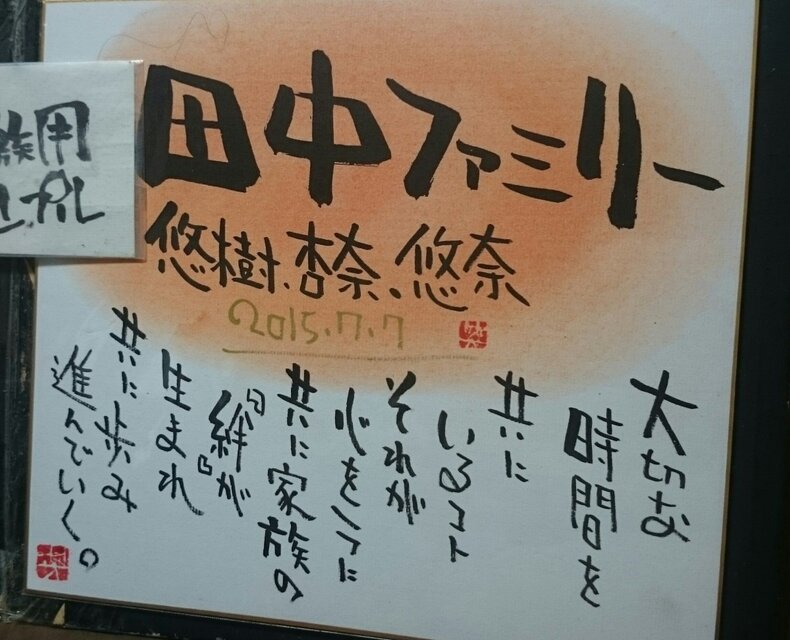 田中ファミリー
悠樹、杏奈、悠奈
2015.7.7
大切な
時間を
共に
いるコト
それが
心を1つに
共に家族の
『絆』が
生まれ
共に歩み
進んでいく。
族用
プル